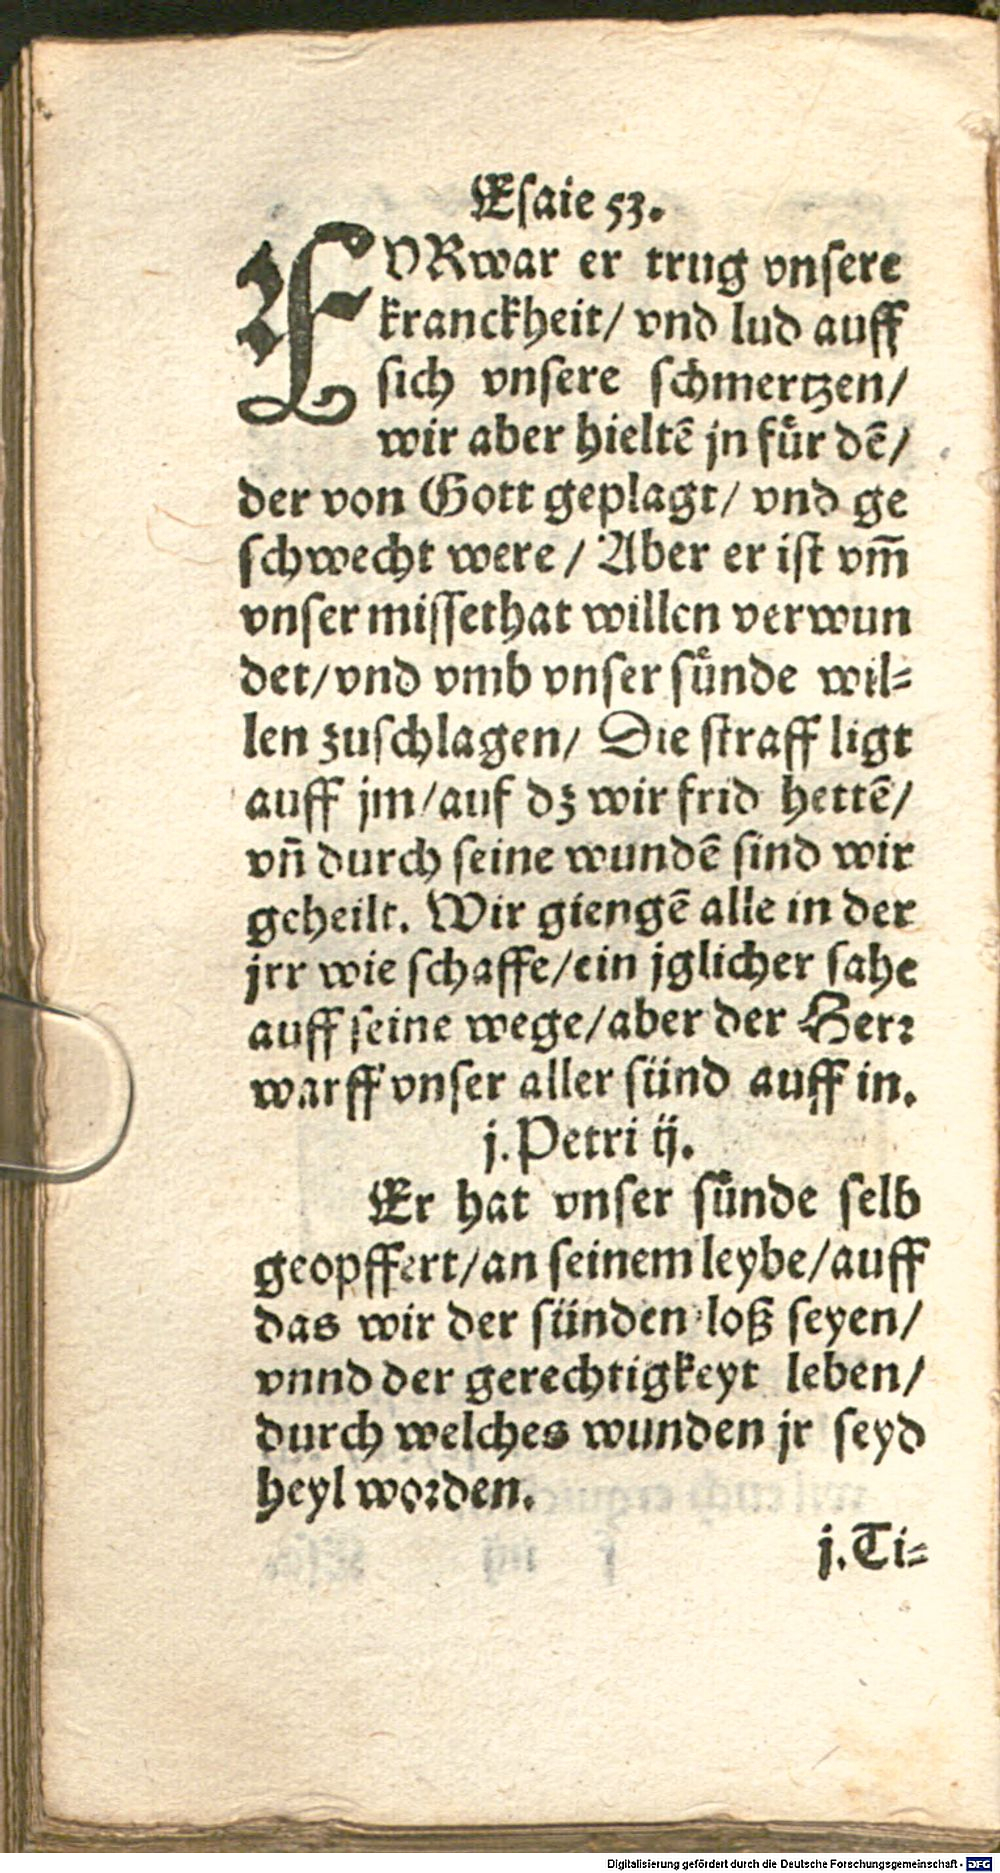 Eſaie 53.
FVRwar er trug vnſere
kranckheit/ vnd lud auff
ſich vnſere ſchmertzen/
wir aber hieltē jn fuͤr dē/
der von Gott geplagt/ vnd ge
ſchwecht were / Aber er iſt vm̄
vnſer miſſethat willen verwun
det/vnd vmb vnſer ſuͤnde wil⸗
len zuſchlagen/ Die ſtraff ligt
auff jm/auf dz wir frid hettē/
vn̄ durch ſeine wundē ſind wir
geheilt. Wir giengē alle in der
jrr wie ſchaffe/ein jglicher ſahe
auff ſeine wege/aber der Herꝛ
warff vnſer aller ſünd auff in.
j. Petri ij.
Er hat vnſer ſuͤnde ſelb
geopffert/an ſeinem leybe/auff
das wir der ſünden loß ſeyen/
vnnd der gerechtigkeyt leben/
durch welches wunden jr ſeyd
heyl woꝛden.
j. Ti⸗
Digitalisierung gefördert durch die Deutsche Forschungsgemeinschaft - DFG